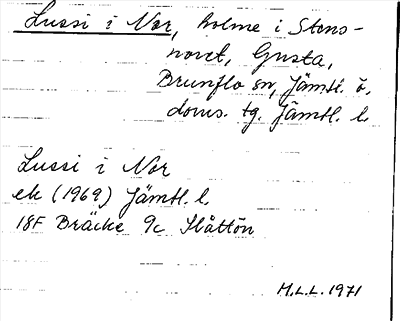 Lussi i Nor, holme i Stens-
novet, Gusta,
Brunflo sn, Jämtl. ö.
doms. tg. Jämtl. l.
Lussi i Nor
ek (1969) Jämtl. l.
18F Bräcke 9c Slåttön
M.L.L. 1971